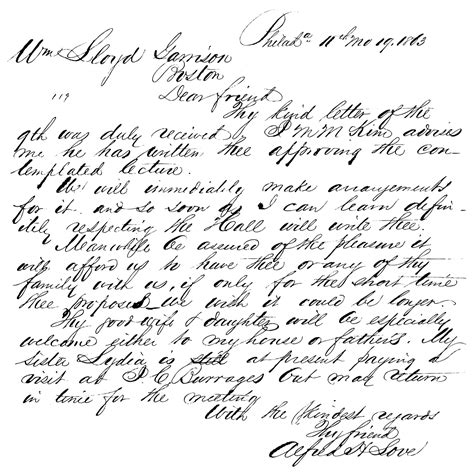 Philada 11th mo 19. 1863
Wm Lloyd Garrison
Boston
119
Dear friend
Thy kind letter of the
9th was duly received, & J M McKim advises
me he has written thee approving the con-
templated lecture.
We will immediately make arrangements
for it. and so soon as I can learn defin-
itely respecting the Hall will write thee.
Meanwhile be assured of the pleasure it
will afford us to have thee or any of thy
family with us, if only for the short time
thee proposes we wish it could be longer.
Thy good wife & daughter will be especially
welcome either to my house or father's. My
sister Lydia is still at present paying a
visit at J. C. Burrages but may return
in time for the meeting
With the kindest regards
Thy friend
Alfred H Love